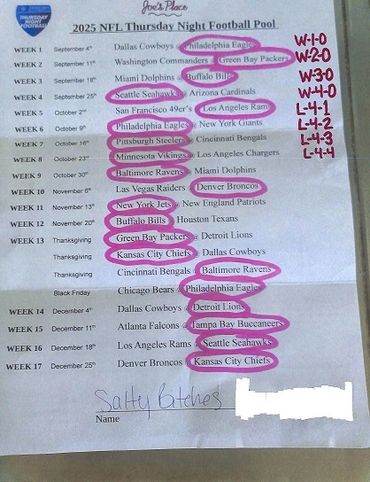 THURSDAY NIGHT FOOTBALL
Joe's Place
2025 NFL Thursday Night Football Pool
WEEK 1 September 4th Dallas Cowboys @ Philadelphia Eagles W-1-0
WEEK 2 September 11th Washington Commanders @ Green Bay Packers W-2-0
WEEK 3 September 18th Miami Dolphins @ Buffalo Bills W-3-0
WEEK 4 September 25th Seattle Seahawks @ Arizona Cardinals W-4-0
WEEK 5 October 2nd San Francisco 49er's @ Los Angeles Rams L-4-1
WEEK 6 October 9th Philadelphia Eagles @ New York Giants L-4-2
WEEK 7 October 16th Pittsburgh Steelers @ Cincinnati Bengals L-4-3
WEEK 8 October 23rd Minnesota Vikings @ Los Angeles Chargers L-4-4
WEEK 9 October 30th Baltimore Ravens @ Miami Dolphins
WEEK 10 November 6th Las Vegas Raiders @ Denver Broncos
WEEK 11 November 13th New York Jets @ New England Patriots
WEEK 12 November 20th Buffalo Bills @ Houston Texans
WEEK 13 Thanksgiving Green Bay Packers @ Detroit Lions
Thanksgiving Kansas City Chiefs @ Dallas Cowboys
Thanksgiving Cincinnati Bengals @ Baltimore Ravens
Black Friday Chicago Bears @ Philadelphia Eagles
WEEK 14 December 4th Dallas Cowboys @ Detroit Lions
WEEK 15 December 11th Atlanta Falcons @ Tampa Bay Buccaneers
WEEK 16 December 18th Los Angeles Rams @ Seattle Seahawks
WEEK 17 December 25th Denver Broncos @ Kansas City Chiefs
Salty Bitches
Name